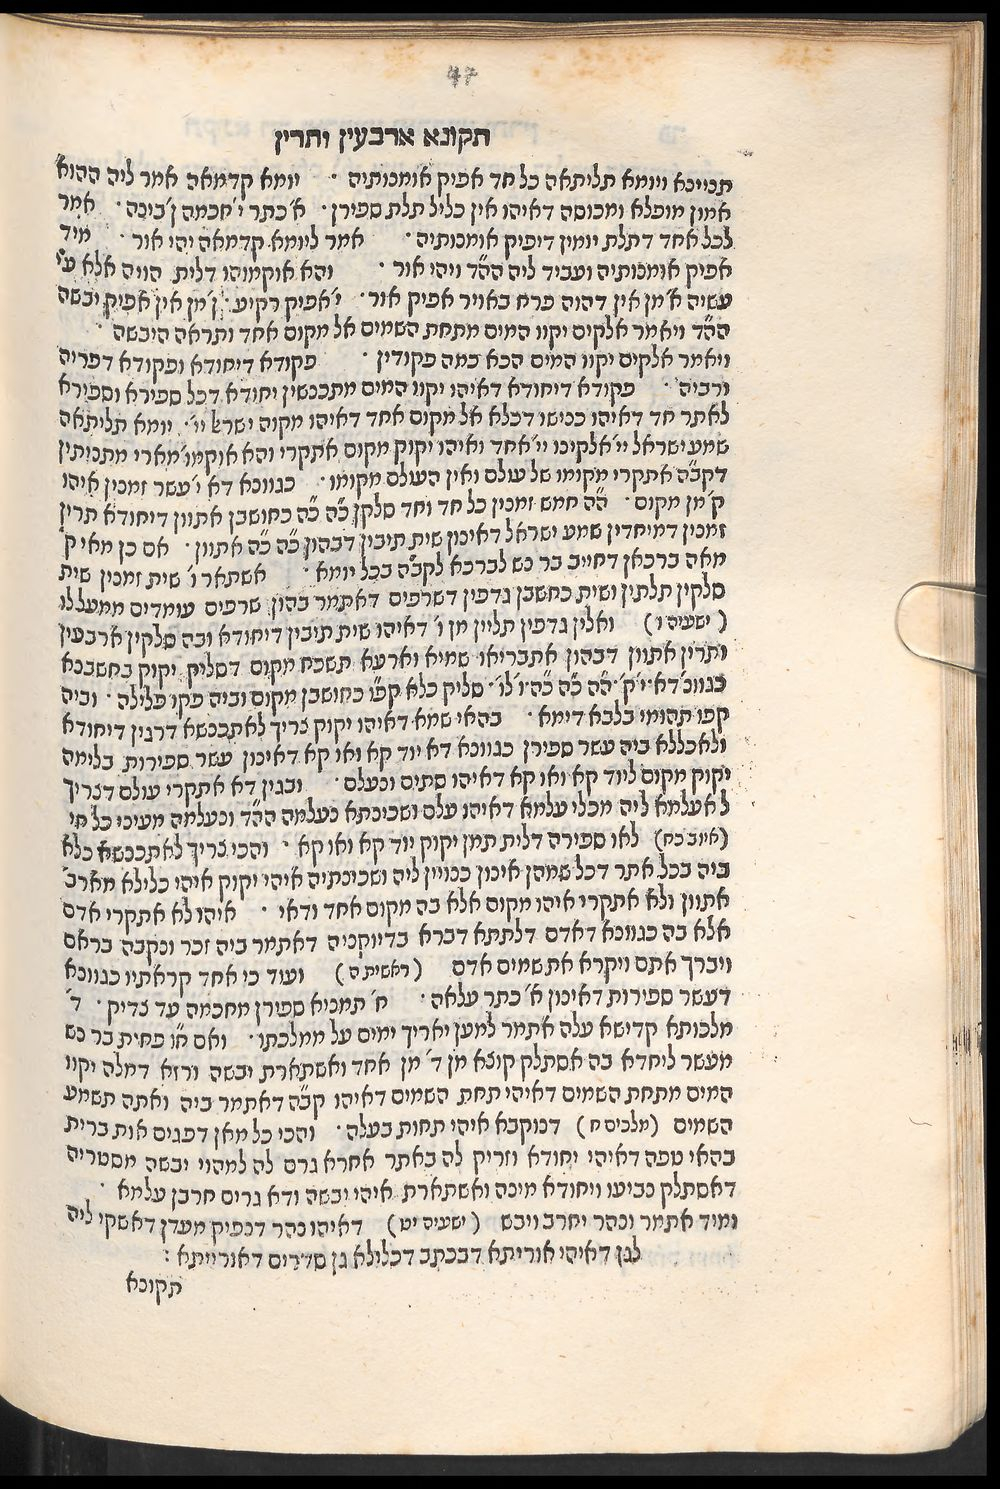 47
תקונא ארבעין ותרין
תניינא ויומא תליתאה כל חד אפיק אומנותיה · יומא קדמאה אמר ליה ההוא
אמון מופלא ומכוסה דאיהו אין כליל תלת ספירן · א׳ כתר י׳ חכמה ן׳ בינה · אמר
לכל אחד דתלת יומין דיפיק אומנותיה · אמר ליומא קדמאה יהי אור · מיד
אפיק אומנותיה ועביד ליה הה״ד ויהי אור · והא אוקמוהו דלית הויה אלא ע״י
עשיה א׳ מן אין דהוה פרח באויר אפיק אור · י׳ אפיק רקיע · ן׳ מן אין אפיק יבשה
הה״ד ויאמר אלקים יקוו המים מתחת השמים אל מקום אחד ותראה היבשה ·
ויאמר אלקים יקוו המים הכא כמה פקודין · פקודא דיחודא ופקודא דפריה
ורביה · פקודא דיחודא דאיהו יקוו המים מתכנשין יחודא דכל ספירא וספירא
לאתר חד דאיהו כנישו דכלא אל מקום אחד דאיהו מקוה ישראל יי׳ · יומא תליתאה
שמע ישראל יי׳ אלקינו יי׳ אחד ואיהו יקוק מקום אתקרי והא אוקמו׳ מארי מתניתין
דקב״ה אתקרי מקומו של עולם ואין העולם מקומו · כגוונא דא י׳ עשר זמנין איהו
ק׳ מן מקום · ה״ה חמש זמנין כל חד וחד סלקן כ״ה כ״ה כחושבן אתוון דיחודא תרין
זמנין דמיחדין שמע ישראל דאינון שית תיבין דבהון כ״ה כ״ה אתוון · אם כן מאי ק׳
מאה ברכאן דחייב בר נש לברכא לקב״ה בכל יומא · אשתאר ו׳ שית זמנין שית
סלקין תלתין ושית כחשבן גדפין דשרפים דאתמר בהון שרפים עומדים ממעל לו
(ישעיה ו) ואלין גדפין תליין מן ו׳ דאיהו שית תיבין דיחודא ובה סלקין ארבעין
ותרין אתוון דבהון אתבריאו שמיא וארעא תשכח מקום דסליק יקוק בחשבנא
כגוונ׳ דא · י׳ ק׳ · ה״ה כ״ה כ״ה · ו׳ לו׳ · סליק כלא קפ״ו כחושבן מקום וביה פקו פלילה · וביה
קפו תהומי בלבא דימא · בהאי שמא דאיהו יקוק צריך לאתכנשא דרגין דיחודא
ולאכללא ביה עשר ספירן כגוונא דא יוד קא ואו קא דאינון עשר ספירות בלימה
יקוק מקום ליוד קא ואו קא דאיהו סתים ונעלם · ובגין דא אתקרי עולם דצריך
לאעלמא ליה מכלי עלמא דאיהו עלם ושכינתא נעלמה הה״ד ונעלמה מעיני כל חי
(איוב כח) לאו ספירה דלית תמן יקוק יוד קא ואו קא · והכי צריך לאתכנשא כלא
ביה בכל אתר דכל שמהן אינון כנויין ליה ושכינתיה איהי יקוק איהי כלילא מארב׳
אתוון ולא אתקרי איהו מקום אלא בה מקום אחד ודאי · איהו לא אתקרי אדם
אלא בה כגוונא דאדם דלתתא דברא בדיוקניה דאתמר ביה זכר ונקבה בראם
ויברך אתם ויקרא את שמים אדם (ראשית ה) ועוד כי אחד קראתיו כגוונא
דעשר ספירות דאינון א׳ כתר עלאה · ח׳ תמניא ספירן מחכמה עד צדיק · ד׳
מלכותא קדישא עלה אתמר למען יאריך ימים על ממלכתו · ואם ח״ו פחית בר נש
מעשר ליחדא בה אסתלק קוצא מן ד׳ מן אחד ואשתארת יבשה ורזא דמלה יקוו
המים מתחת השמים דאיהי תחת השמים דאיהו קב״ה דאתמר ביה ואתה תשמע
השמים (מלכים ח) דנוקבא איהי תחות בעלה · והכי כל מאן דפגים אות ברית
בהאי טפה דאיהי יחודא וזריק לה באתר אחרא גרם לה למהוי יבשה מסטריה
דאסתלק נביעו ויחודא מינה ואשתארת איהי יבשה ודא גרים חרבן עלמא ·
ומיד אתמר ונהר יחרב ויבש (ישעיה יט) דאיהו נהר דנפיק מעדן דאשקי ליה
לגן דאיהי אוריתא דבכתב דכלולא גן סדרים דאורייתא :
תקונא